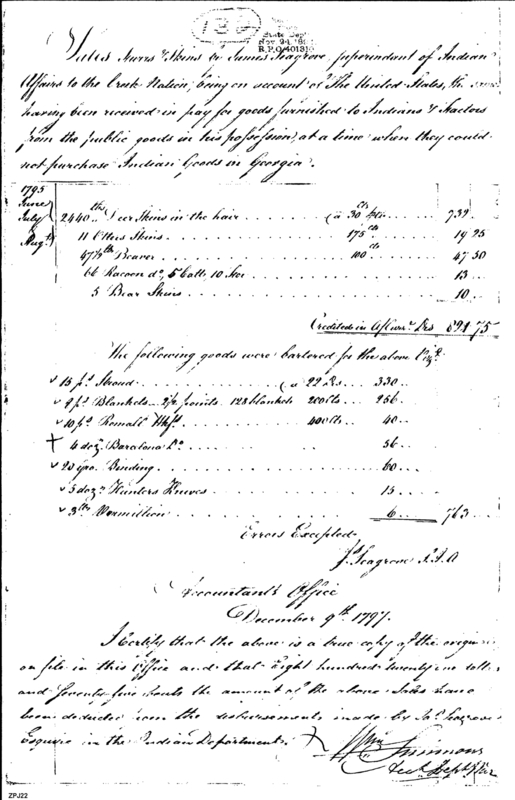 132
State Dept
R.P.O/401310
Sales Furrs & Skins by James Seagrove, superindant of Indian
Affairs to the Creek Nation, being on account of The United States, the same
having been received in pay for goods furnished to Indians & Factors
from the public goods in his possession, at a time when they could
not purchase Indian Goods in Georgia.
1795
June
July
Augt.
2440 lbs Deer Skins in the hair . . . . . . @ 30 Cts. . . . 732 . .
11 Otters Skins . . . . . . 175 cts . . . 19 25
47½ lb Beaver . . . . . . 100 cts . . . 47 50
66 Racoon do, 5 Catts, 10 Fox . . . . . . 13 . .
5 Bear Skins . . . . . . 10 . .
Credited in a/Curr. Drs 821 75
The following goods were bartered for the above Vizt.
v 15 ps. Stroud . . . . . . @ 22 Drs . . . 330 . . .
v 9 ps. Blankets 2½ points 128 blankets 200 Cts . . . 256 . . .
v 10 ps. Romall Hkfs. . . . . . . 400 Cts . . . 40 . . .
+ 4 doz. Barcelona Do . . . . . . 56 . . .
v 20 gro. Binding . . . . . . 60 . . .
v 5 doz. Hunters Knives . . . . . . 15 . . .
v 3 lbs Vermillion . . . . . . 6 . . . 763 . .
Errors Excepted
Js. Seagrove S.I.A
Accountant's Office
December 9th. 1797.
I Certify that the above is a true copy of the original
on file in this Office and that Eight hundred twenty one dollars
and Seventy five cents the amount of the above Sales have
been deducted from the disbursements made by Jas. Seagrove
Esquire in the Indian Department.
Wm Simmons
Acct. Dept War
ZPJ22